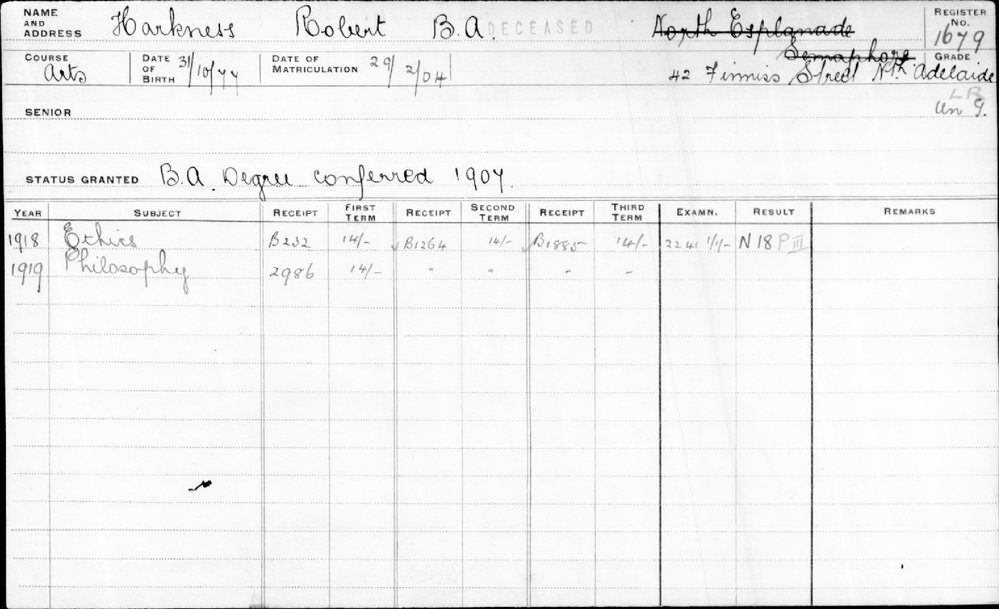 NAME AND ADDRESS Harkness Robert B.A. DECEASED North Esplanade REGISTER No. 1679
Semaphore
COURSE Arts DATE OF BIRTH 31/10/77 DATE OF MATRICULATION 29/2/04 42 Finniss Street Nth Adelaide GRADE
LB
Un G.
SENIOR
STATUS GRANTED B.A. Degree conferred 1907.
YEAR SUBJECT RECEIPT FIRST TERM RECEIPT SECOND TERM RECEIPT THIRD TERM EXAMN. RESULT REMARKS
1918 Ethics B232 14/- B1264 14/- B1885 14/- 2241 1/1/- N18 P III
1919 Philosophy 2986 14/- " " " "